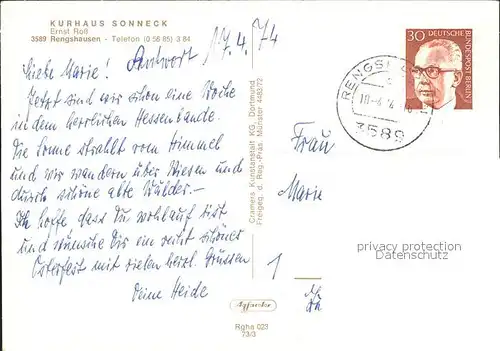 KURHAUS SONNECK
Ernst Roß
3589 Rengshausen - Telefon (0 56 85) 3 84
Antwort 17.4.74
Liebe Marie!
Jetzt sind wir schon eine Woche
im herrlichen Hessenlande.
Die Sonne strahlt vom Himmel
und wir wandern über Wiesen und
durch schöne alte Wälder. –
Ich hoffe, dass Du wohlauf bist
und wünsche Dir ein recht schönes
Osterfest mit vielen herzl. Grüssen
Deine Heide
Cramers Kunstanstalt KG, Dortmund
Freigeg. d. Reg.-Präs. Münster 448372
Agfacolor
Rgha 023
73/3
30 DEUTSCHE BUNDESPOST BERLIN
3589
Frau
Marie
privacy protection
Datenschutz
1